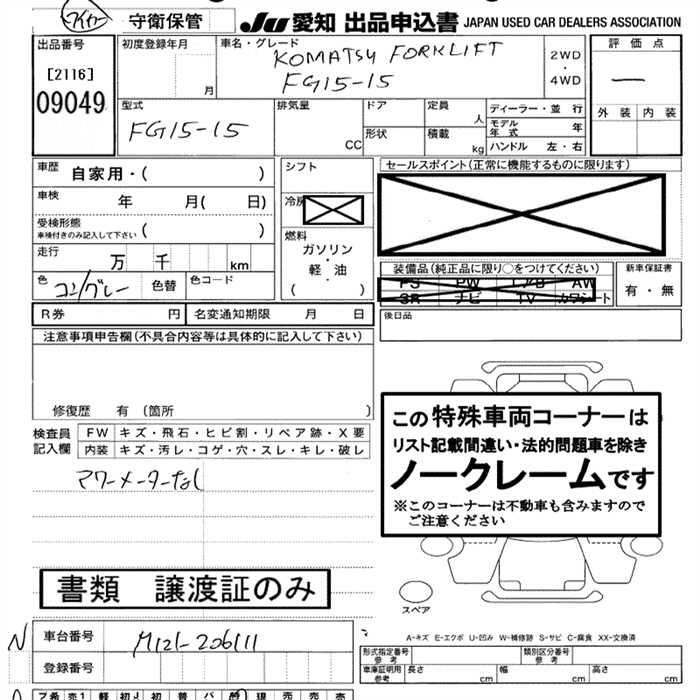 守衛保管
JU 愛知 出品申込書 JAPAN USED CAR DEALERS ASSOCIATION
出品番号
[2116]
09049
初度登録年月
月
車名・グレード
KOMATSU FORKLIFT
FG15-15
2WD
・
4WD
評価点
—
外装 内装
型式
FG15-15
排気量
CC
ドア
形状
定員
人
積載
kg
ディーラー・並行
モデル年式 年
ハンドル 左・右
車歴
自家用・( )
車検
年 月( 日)
受検形態
車検付きのみ記入して下さい ( )
走行
万 千 km
色
コン/グレー
色替
色コード
シフト
冷房
燃料
ガソリン
・
軽・油
( )
セールスポイント(正常に機能するものに限ります)
装備品(純正品に限り○をつけてください)
PS PW エアB AW
SR ナビ TV カワシート
新車保証書
有・無
R券 円 名変通知期限 月 日
後日品
注意事項申告欄(不具合内容等は具体的に記入して下さい)
修復歴 有 (箇所 )
検査員
記入欄
FW キズ・飛石・ヒビ割・リペア跡・X要
内装 キズ・汚レ・コゲ・穴・スレ・キレ・破レ
アワーメーターなし
この特殊車両コーナーは
リスト記載間違い・法的問題車を除き
ノークレームです
※このコーナーは不動車も含みますので
ご注意ください
書類 譲渡証のみ
スペア
A-キズ E-エクボ U-凹み W-補修跡 S-サビ C-腐食 XX-交換済
N
車台番号
M121-206111
登録番号
形式指定番号
参考
類別区分番号
参考
車庫証明用
参考
長さ cm 幅 cm 高さ cm